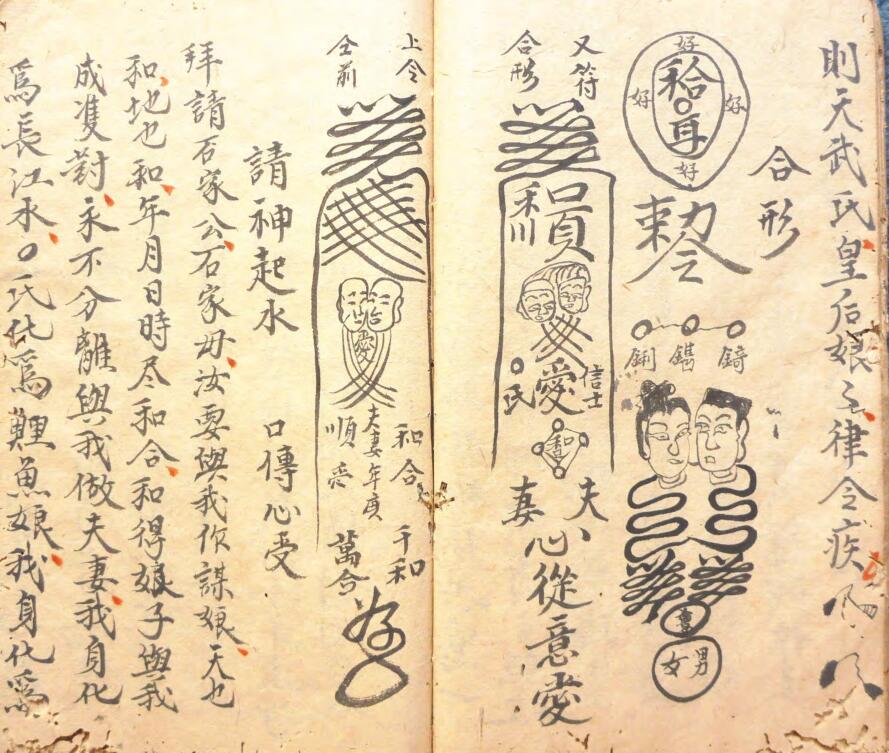 則天武氏皇后娘之律令疾
合形
好
好 好
好
和合
耳
敕令
男女
又符
合形
和
信士
氏
愛
和
夫
妻
心從意愛
上仝
仝前
愛
和合
千和
夫妻年庚
順
萬合
請神起水
口傳心受
拜請石家公石家母汝要與我作謀娘天也
和地也和年月日時尽和合和得娘子與我
成双對永不分離與我做夫妻我身化
為長江水〇氏化為鯉魚娘我身化為